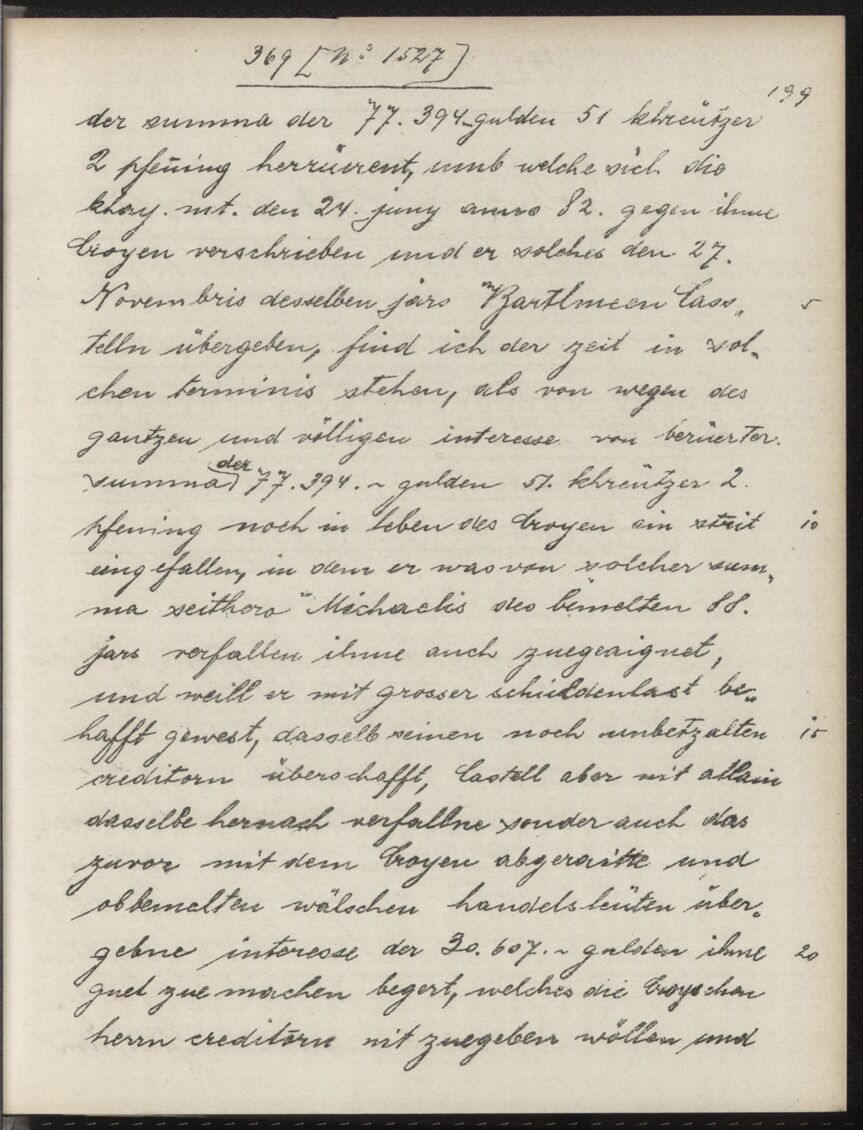 369 [No 1527]
199
der summa der 77.394 gulden 51 khreützer
2 pfening herrüerent, umb welche sich die
khay. mt. den 24. juny anno 82. gegen ihme
Croyen verschrieben und er solches den 27.
Novembris desselben jars Bartlmeen Cas„ 5
telln übergeben, find ich der zeit in sol„
chen terminis stehen, als von wegen des
gantzen und völligen interesse von berüerter
summa der 77.394.~ gulden 51. khreützer 2.
pfening noch in leben des Croyen ein strit 10
eingefallen, in dem er was von solcher sum„
ma seithero Michaelis des bemelten 88.
jars verfallen ihme auch zuegeaignet,
und weill er mit grosser schuldenlast be„
hafft gewest, dasselb seinen noch unbetzalten 15
creditorn überschafft, Castell aber nit allain
dasselbe hernach verfallne sonder auch das
zuvor mit dem Croyen abgeraitte und
obbemelten wälschen handelsleüten über„
gebne interesse der 30.607.~ gulden ihme 20
guet zue machen begert, welches die Croyschen
herrn creditorn nit zuegeben wöllen und